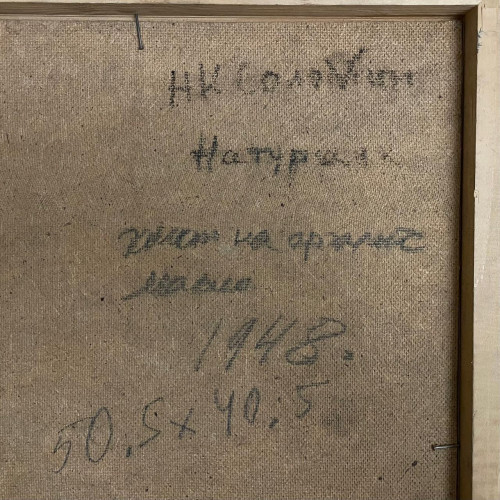 НК Соломин
Натурщи
холст на оргалите
масло
1948.
50,5 x 40,5